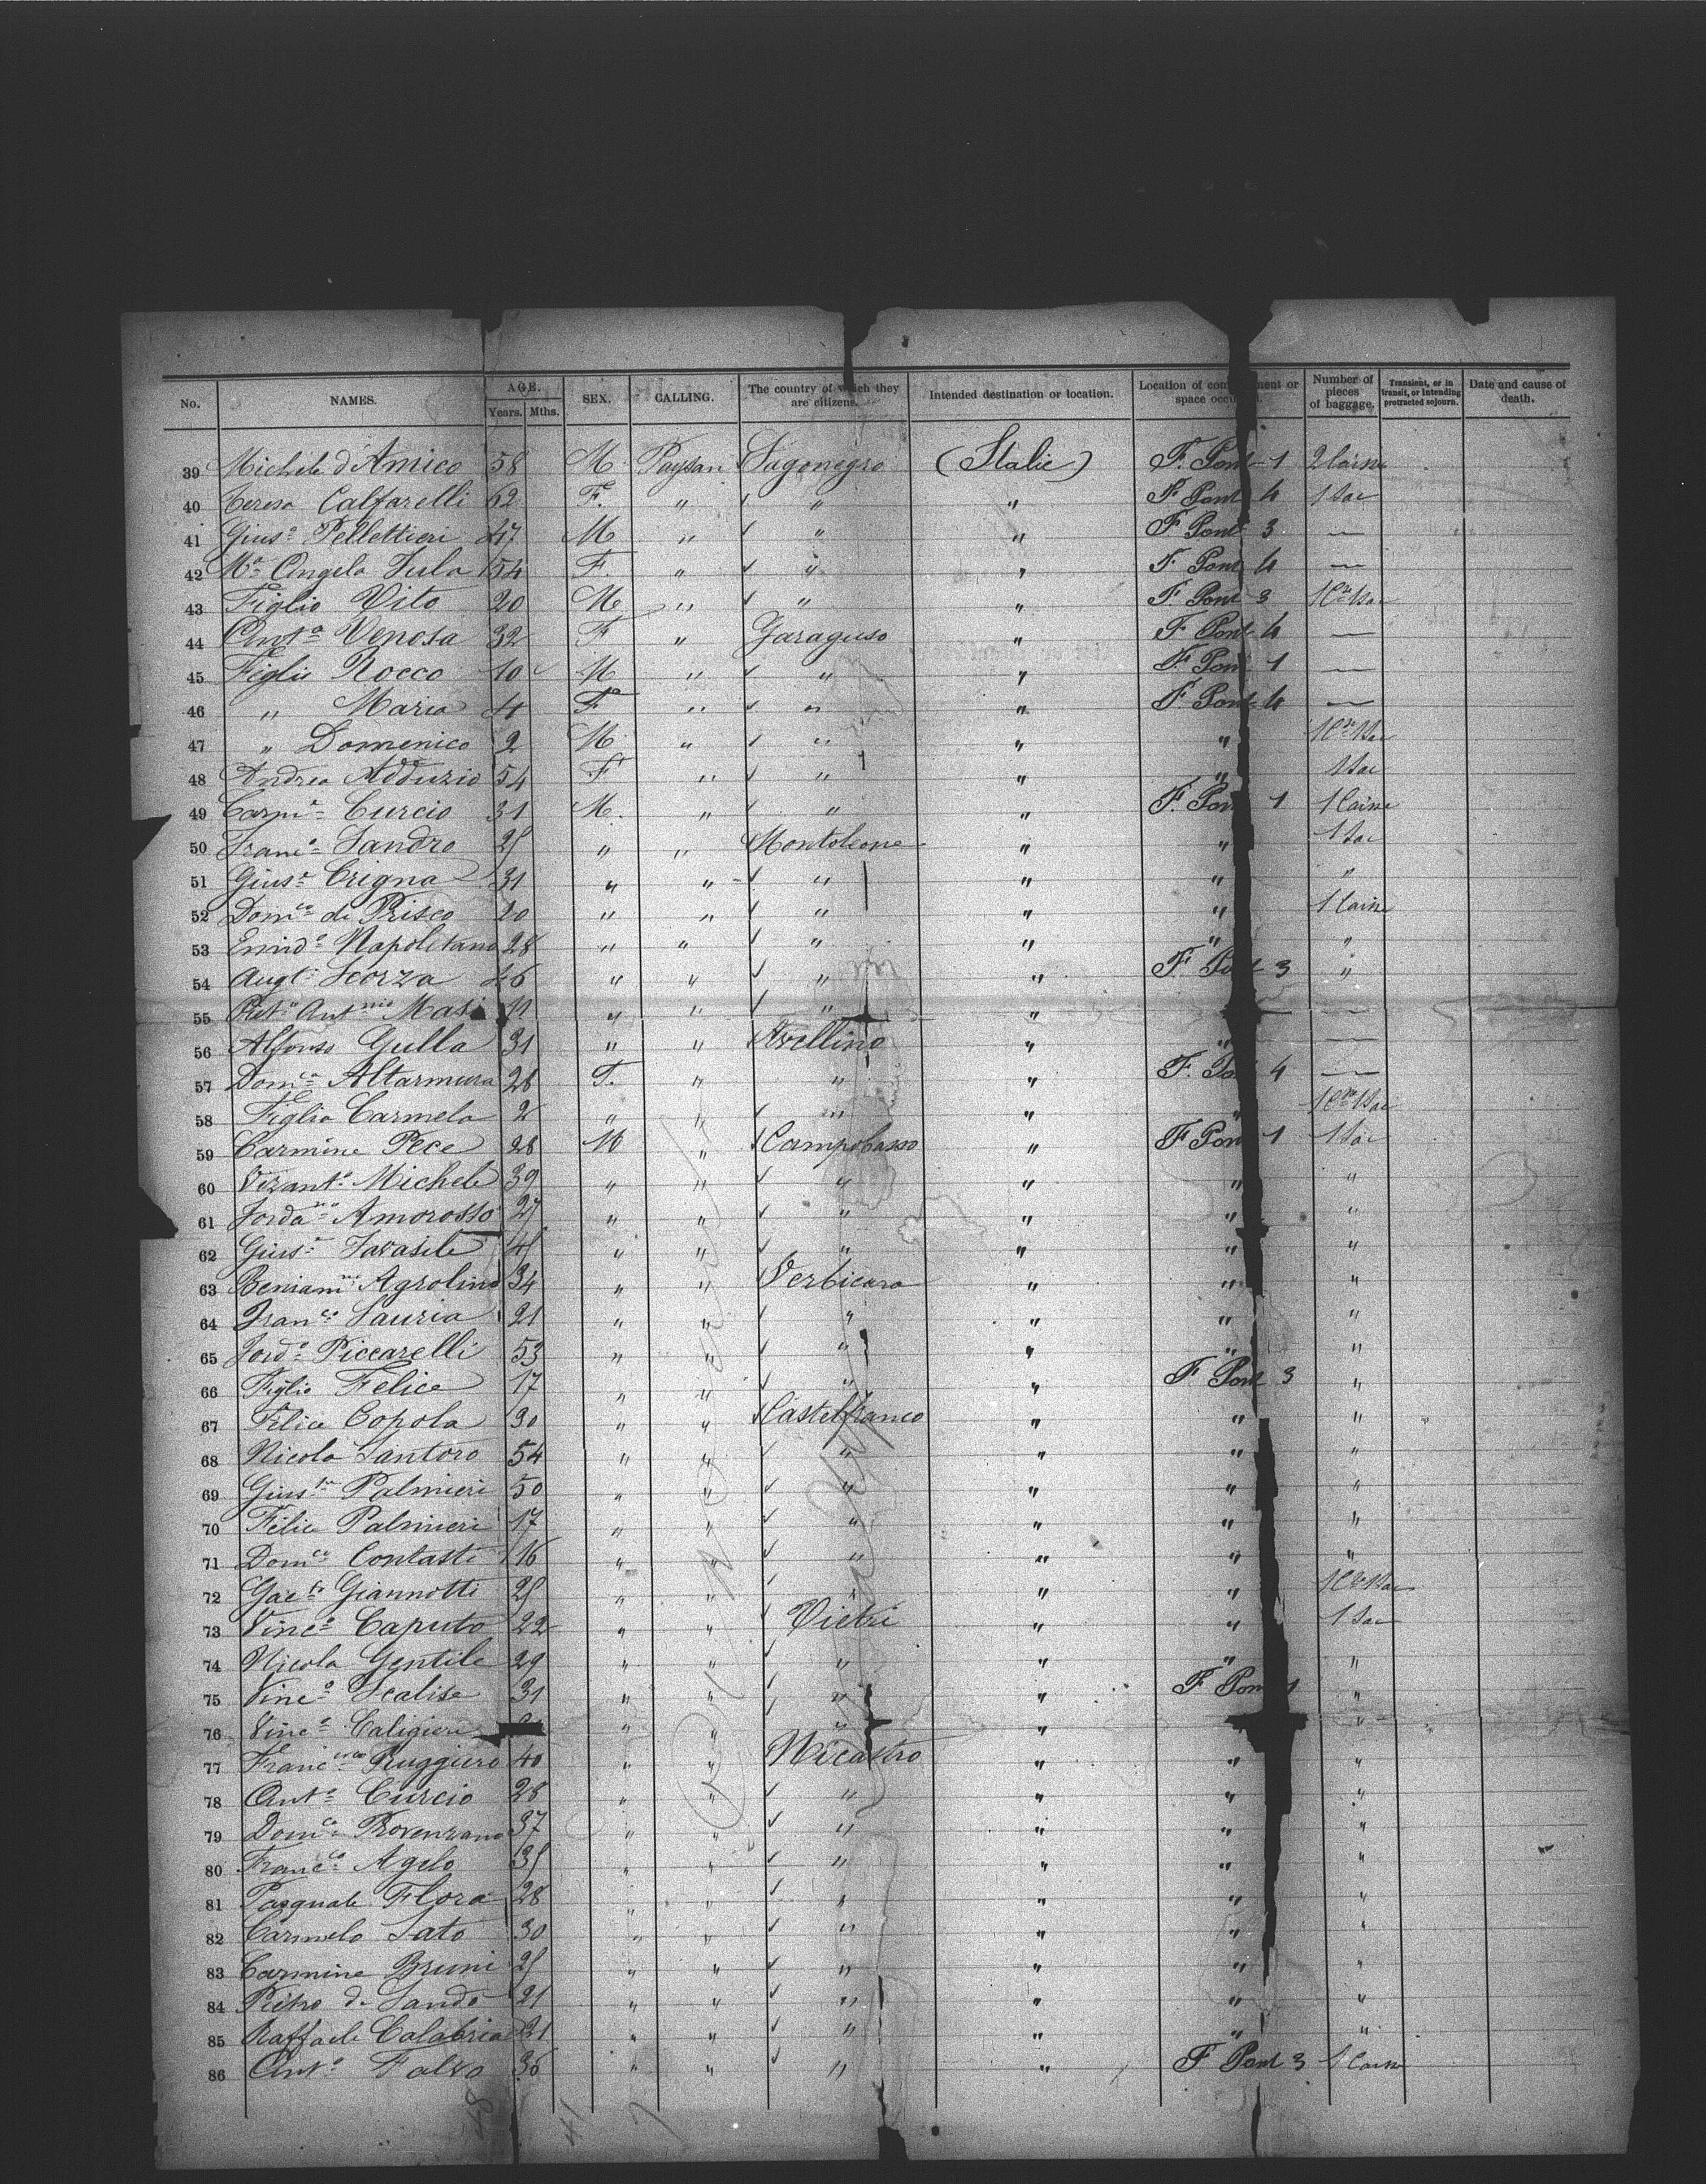 No. NAMES. AGE. Years. Mths. SEX. CALLING. The country of which they are citizens. Intended destination or location. Location of compartment or space occupied. Number of pieces of baggage. Transient, or in transit, or intending protracted sojourn. Date and cause of death.
39 Michele d'Amico 58 M. Paysan Lagonegro (Italie) F. Pont 1 2 Caisse
40 Teresa Calfarelli 62 F. " " " F Pont 4 1 Sac
41 Gius.e Pellettieri 47 M " " " F Pont 3 —
42 M.a Angela Iula 54 F. " " " F Pont 4 —
43 Figlio Vito 20 M " " " F. Pont 3
44 Ant.a Venosa 32 F " Garaguso " F Pont 4 —
45 Figlio Rocco 10 M " " " F. Pont 1 —
46 " Maria 4 F " " " F Pont 4 —
47 " Domenico 2 M " " " "
48 Andrea Adduzio 54 F " " " " 1 Sac
49 Carm.e Curcio 31 M. " " " F. Pont 1 1 Caisse
50 Franc.o Sandro 25 " " Monteleone " " 1 Sac
51 Gius.e Crigna 31 " " " " " "
52 Dom.co di Prisco 20 " " " " " 1 Caisse
53 Emid.o Napoletano 28 " " " " " "
54 Aug.to Scorza 46 " " " " F Pont 3 "
55 Ant.nio Masi 11 " " " " —
56 Alfonso Gulla 31 " " Avellino " " —
57 Dom.ca Altarmura 28 F. " " " F. Pont 4 —
58 Figlia Carmela 2 " " " " "
59 Carmine Pece 28 M " Campobasso " F Pont 1 1 Sac
60 Vizant.o Michele 39 " " " " " "
61 Amorosso 27 " " " " " "
62 Gius.e Tavasile 45 " " " " " "
63 Beniam.no Agrolino 34 " " Verbicaro " " "
64 Fran.co Lauria 21 " " " " " "
65 Piccarelli 53 " " " " " "
66 Figlio Felice 17 " " " " F Pont 3 "
67 Felice Copola 30 " " Castelfranco " " "
68 Nicola Santoro 54 " " " " " "
69 Gius.pe Palmieri 50 " " " " " "
70 Felice Palmieri 17 " " " " " "
71 Dom.co Contasti 16 " " " " " "
72 Gae.to Giannotti 25 " " " " "
73 Vinc.o Caputo 22 " " Vietri " " 1 Sac
74 Nicola Gentile 29 " " " " " "
75 Vinc.o Scalise 31 " " " " F Pont 1 "
76 Vinc.o Caligiuri " " " " "
77 Franc.sco Ruggiero 40 " " Nicastro " " "
78 Ant.o Curcio 28 " " " " " "
79 Dom.co Provenzano 37 " " " " " "
80 Franc.co Agelo 35 " " " " " "
81 Pasquale Flora 28 " " " " " "
82 Carmelo Sato 30 " " " " " "
83 Carmine Bruni 25 " " " " " "
84 Pietro d. Sando 21 " " " " " "
85 Raffaele Calabria 21 " " " " " "
86 Ant.o Falvo 36 " " " " F Pont 3 1 Caisse
41 7